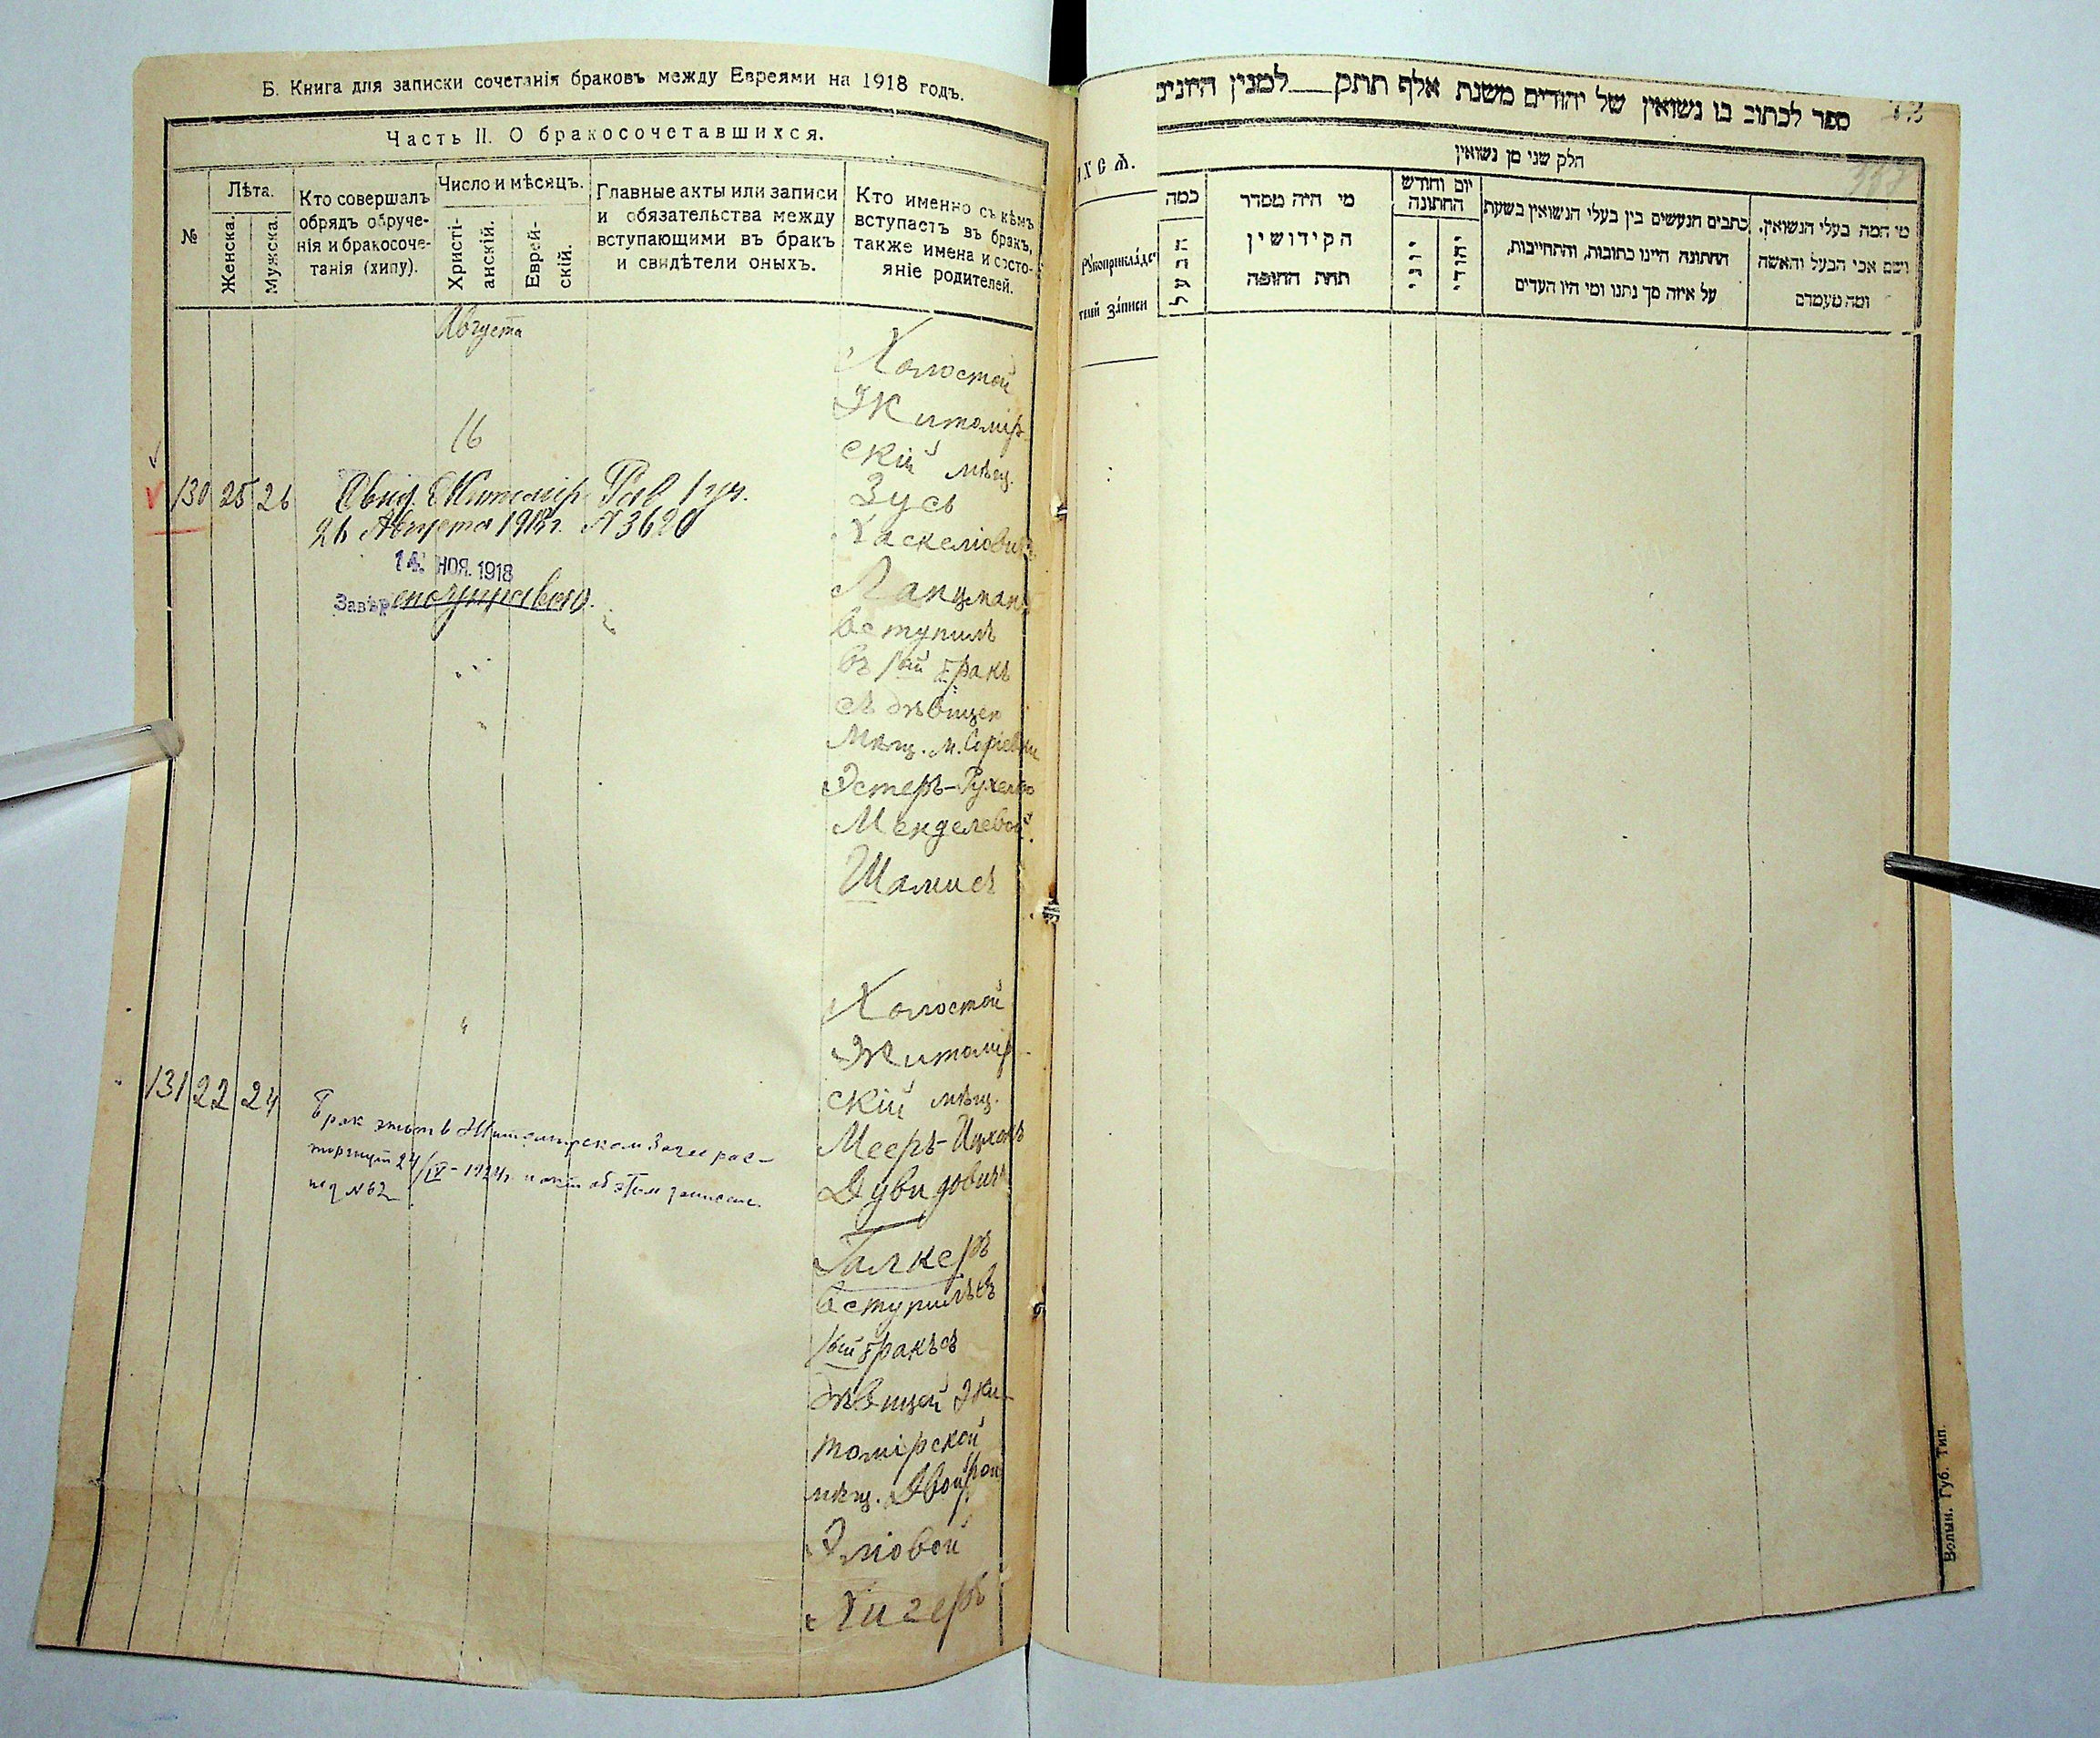 Б. Книга для записки сочетанія браковъ между Евреями на 1918 годъ.
Часть II. О бракосочетавшихся.
№
Лѣта.
Женска.
Мужска.
Кто совершалъ
обрядъ обруче-
нія и бракосоче-
танія (хипу).
Число и мѣсяцъ.
Христі-
анскій.
Еврей-
скій.
Главные акты или записи
и обязательства между
вступающими въ бракъ
и свидѣтели оныхъ.
Кто именно съ кѣмъ
вступаетъ въ бракъ,
также имена и состо-
яніе родителей.
Августа
16
130 25 26
26 Августа 1918 г. № 3620
14 НОЯ. 1918
Завѣр
Холостой
Житомір
скій мѣщ.
Зусь
Хаскелiовичъ
Ланцманъ
вступилъ
въ 1ый бракъ
съ дѣвицею
мѣщ. м.
Эстеръ-Рухелью
Менделевой
Шамисъ
131 22 24
"
Брак этот в Житомирском Загсе рас-
торгнут 24/IV-1924 г. и акт об этом записан
под № 62
Холостой
Житомір
скій мѣщ.
Мееръ-Ицхокъ
Дувидовичъ
Галкеръ
вступилъ въ
1ый бракъ съ
дѣвицей Жи-
томірской
мѣщ. Двойрой
Эліовой
Хигеръ
ספר לכתוב בו נשואין של יהודים משנת אלף תתק למנין הרונים
חלק שני מן נשואין
ихся.
рукоприкладс
тей записи
כמה
הבעל
מי היה מסדר
הקידושין
תחת החופה
יום וחודש
החתונה
יוני
יהודי
כתבים הנעשים בין בעלי הנשואין בשעת
החתונה היינו כתובות, והתחייבות,
על איזה סך נתנו ומי היו העדים
מי המה בעלי הנשואין,
ושם אבי הבעל והאשה
ומה מעמדם
Волын. Губ. Тип.